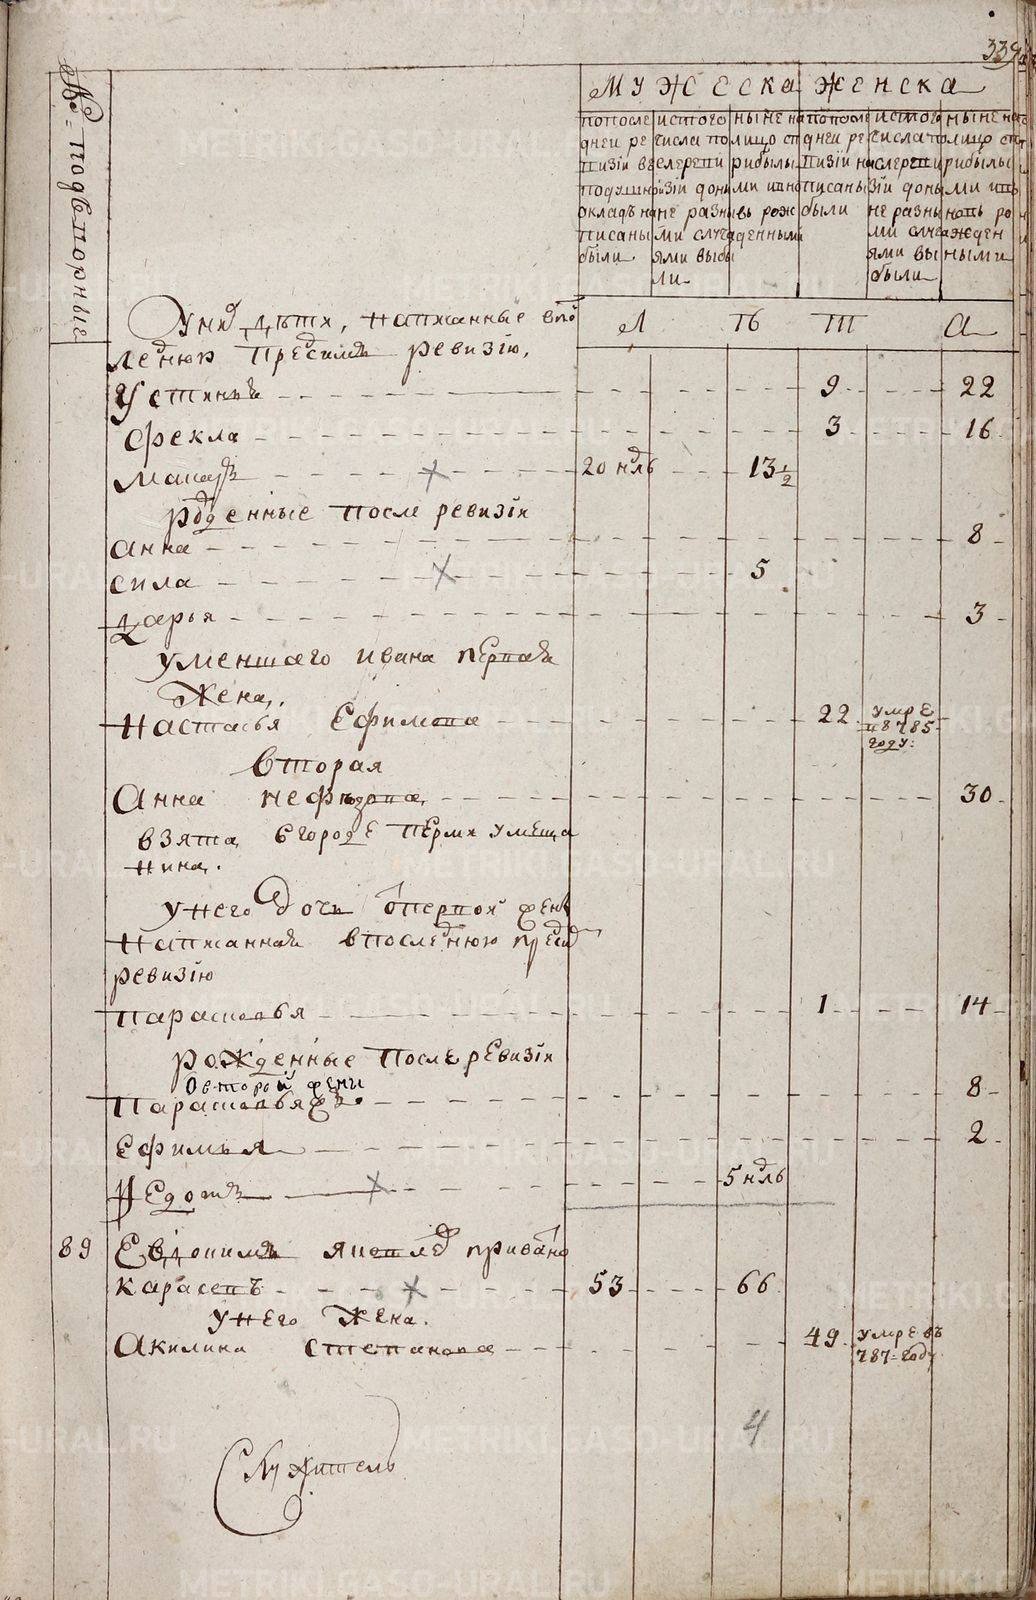 339
№ = подворные
мужеска
женска
попосле дней ре визiи в подушной окладъ на писаны были
ис того числа по слерепи зiи до ны не разны ми случа ями выбы ли
ныне на лицо ст рибылы ми ивь рож денными
попосле дней ре визiи на писаны были
ис того числа по слерепи зiи доны не разны ми случа ями вы были
ныне на лицо ст рибылы ми ивь рожден ными
л
ть
т
а
у них дѣти, написанные впо
леднюю пред симъ ревизiю,
Устинья 9 22
фекла 3 16
Макаръ 20 нлъ 13 1/2
рожденные после ревизiи
анна 8
сила 5
дарья 3
уменшаго ивана первая
Жена,
настасья Ефимова 22 умре в 785 году:
вторая
Анна нефедова 30
взята в городе перми умеща
нина.
унего дочь от первой жены
написанная в последнюю пред сим
ревизiю
парасковья 1 14
рожденные после ревизiи
от второй жены
парасковья ж 8
Ефимья 2
Федотъ 5 нлъ
89 Евдокимъ яковлев приватно
карасевъ 53 66
унего Жена.
Акилина степанова 49 умре въ 787 = году
4
Служитель